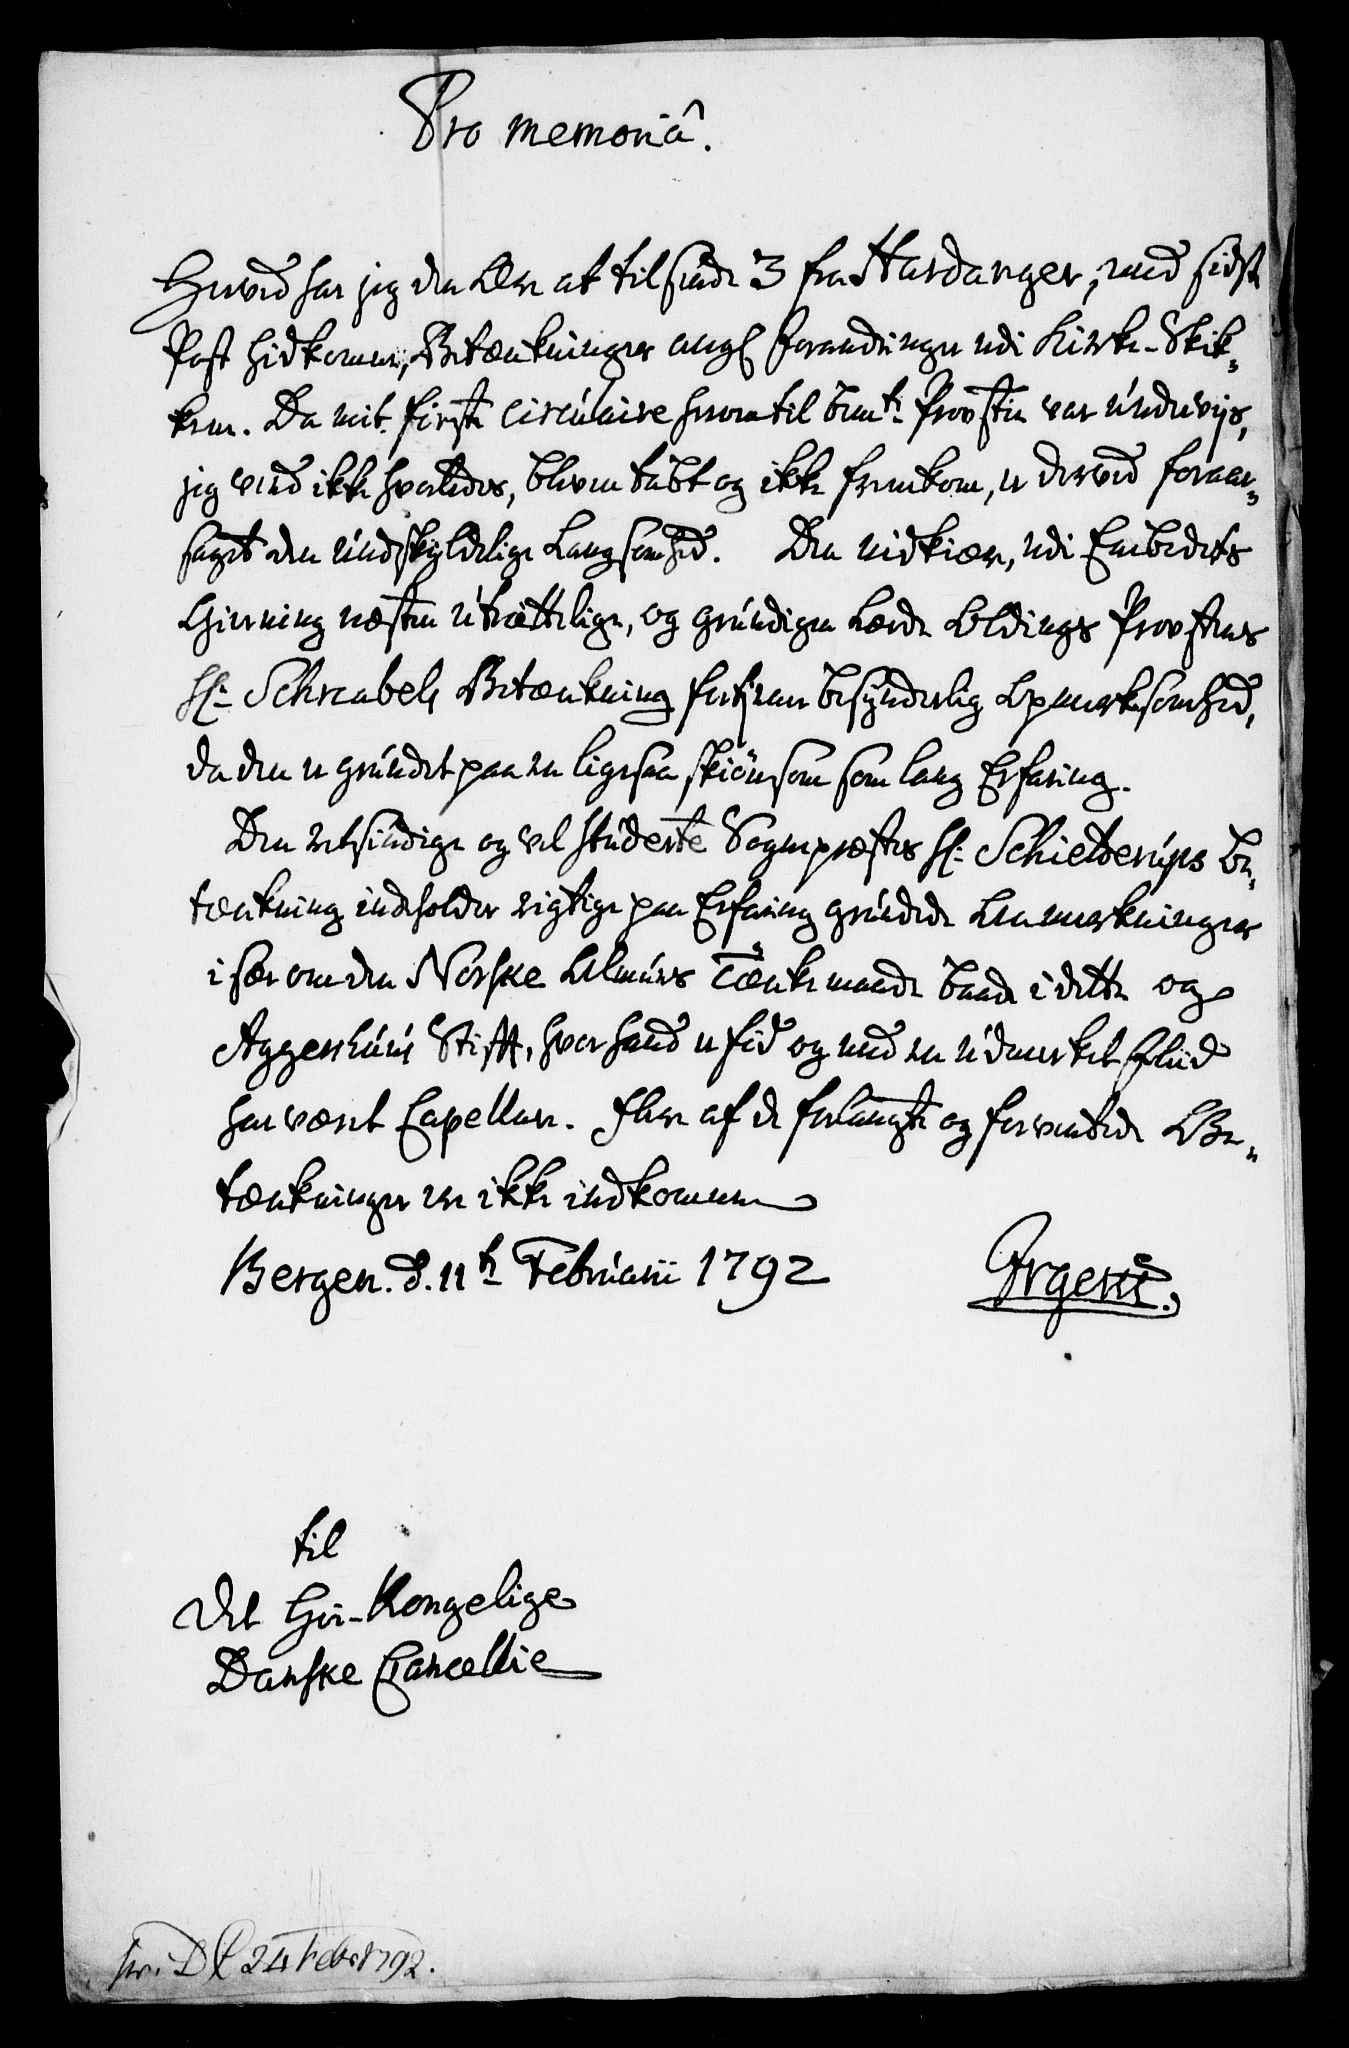 Pro memoriâ.
Herved har jeg den Ære at tilsende 3 fra Hardanger, med sidste
Post hidkomne, Betænkninger angl Forandringer udi Kirke-Skik-
kene. Da mit første Circulaire herom til bemte Provstie var underveys,
jeg veed ikke hvorledes, bleven tabt og ikke fremkom, er derved foraar-
saget den undskyldelige Langsomhed. Den nidkiære, udi Embedets
Gierning næsten utrættelige, og grundigen Lærde Oldings Provstens
Hr. Schnabels Betænkning fortiener besynderlig Opmerksomhed,
da den er grundet paa en ligesaa skiönsom som lang Erfaring.
Den retsindige og vel studerte Sognepræstes Hr. Schielderups Be-
tænkning indeholder rigtige paa Erfaring grundede Anmerkninger
i sær om den Norske Almues Tænkemaade baade i dette og
Aggershuus Stift, hvor hand er fød og med en udmerket Fliid
har været Capellan. Flere af de forlangte og forventede Be-
tænkninger ere ikke indkomne
Bergen. d. 11te Februarii 1792
Irgens.
til
Det Høi-Kongelige
Danske Cancellie
24 Febr 1792.